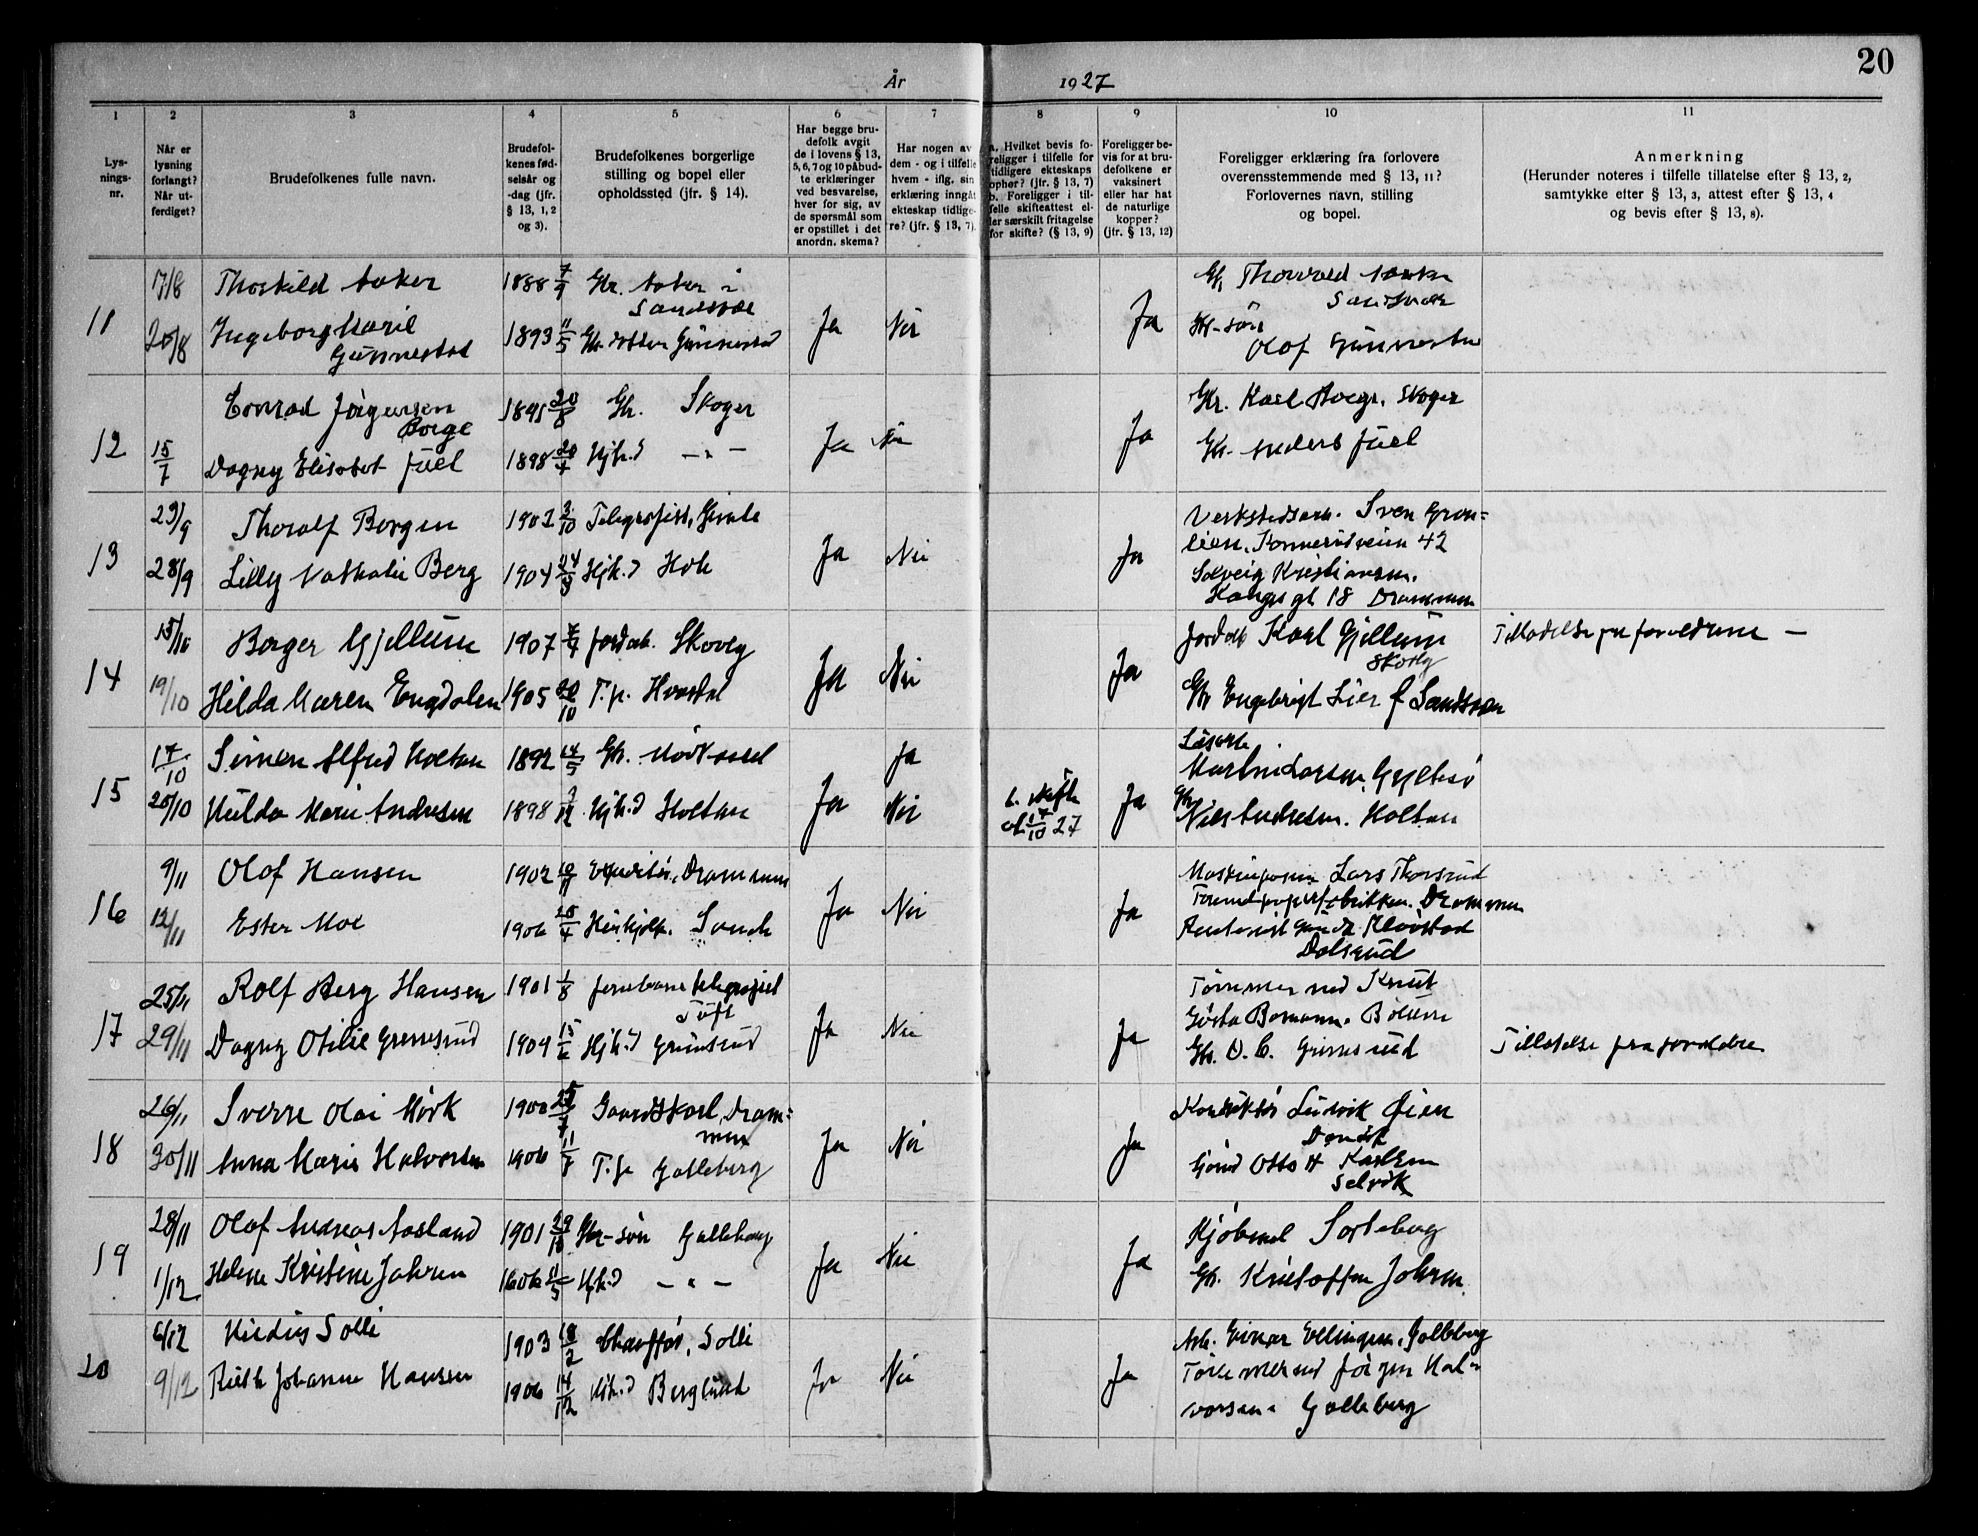 20
År 1927
1 2 3 4 5 6 7 8 9 10 11
Lys-
nings-
nr.
Når er
lysning
forlangt?
Når ut-
ferdiget?
Brudefolkenes fulle navn.
Brudefol-
kenes fød-
selsår og
-dag (jfr.
§ 13, 1, 2
og 3).
Brudefolkenes borgerlige
stilling og bopel eller
opholdssted (jfr. § 14).
Har begge bru-
defolk avgit
de i lovens § 13,
5, 6, 7 og 10 påbud-
te erklæringer
ved besvarelse,
hver for sig, av
de spørsmål som
er opstillet i det
anordn. skema?
Har nogen av
dem - og i tilfelle
hvem - iflg. sin
erklæring inngåt
ekteskap tidlige-
re? (jfr. § 13, 7).
a. Hvilket bevis fo-
religger i tilfelle for
tidligere ekteskaps
ophør? (jfr. § 13, 7)
b. Foreligger i til-
felle skifteattest el-
ler særskilt fritagelse
for skifte? (§ 13, 9)
Foreligger be-
vis for at bru-
defolkene er
vaksinert
eller har hat
de naturlige
kopper?
(jfr. § 13, 12)
Foreligger erklæring fra forlovere
overensstemmende med § 13, 11?
Forlovernes navn, stilling
og bopel.
Anmerkning
(Herunder noteres i tilfelle tillatelse efter § 13, 2,
samtykke efter § 13, 3, attest efter § 13, 4
og bevis efter § 13, 8).
11 17/8 Thorkild Aaker 1888 7/9 Gbr. Aaker i
Sandsvær
20/8 Ingeborg Marie
Gunnestad 1893 11/5 Gbr.datter Gunnestad Ja Nei Ja
Gbr. Thorvald Aaker
Sandsvær
Gbr-søn
Olof Gunnestad
12 Conrad Jørgensen
Borge 1895 20/8 Gbr. Skoger
15/7 Dagny Elisabet Juel 1898 20/4 Hjh.d — " — Ja Nei Ja
Gbr. Karl Borge, Skoger
Gbr. Anders Juel
13 23/9 Thoralf Borgen 1903 3/10 Telegrafist,
28/9 Lilly Nathalie Berg 1904 Hjh.d Ja Nei Ja
Verkstedsarb. Sven Gron-
lien, Konnerudveien 42
Solveig Kristiansen.
Haugs gt. 18 Drammen
14 15/10 Borger Gjellum 1907 Jordarb. Skovly
19/10 Hilda Maren Engdalen 1905 20/10 T.p. Ja Nei Ja
Jordarb Karl Gjellum
Skovly
Gbr Engebrigt Lier f Sandsvær
Tilladelse fra foreldrene —
15 17/10 Simen Alfred Holtan 1892 14/5 Gbr. Ja
20/10 Hulda Marie Andresen 1898 Hjh.d Holtan Ja Nei
b. Skifte
af 17/10 27 Ja
Martin Larsen,
Gbr Nils Andresen. Holtan
16 9/11 Olof Hansen 1902 Expeditør, Drammen
12/11 Ester Moe 1906 Hushjelp. Sande Ja Nei Ja
Lars Thorsrud
Drammen
Klovstad
Dalsrud
17 25/11 Rolf Berg Hansen 1901 1/8 Jernbanetelegrafist
Tofte
29/11 Dagny Otilie Grimsrud 1904 15/6 Hjh.d Grimsrud Ja Nei Ja
Tømmermed Knut
Gösta Bomann.
Gbr. O. C. Grimsrud
Tilladelse fra foreldre
18 26/11 Sverre Olai Mørk 1900 Gaardskarl, Dram-
men
30/11 Anna Marie Halvorsen 1906 11/7 T.p. Galleberg Ja Nei Ja
Konduktør Ludvik Øien
Otto H Karlsen
Selvik
19 28/11 Olof Andreas Aasland 1901 29/10 Gbr-søn Galleberg
1/12 Helene Kristine Johren 1606 11/5 Hjh.d — " — Ja Nei Ja
Kjøbmd Sorteberg
Gbr. Kristoffen Johren.
20 6/12 Solli 1903 18/2 Chauffør, Solli
9/12 Ruth Johanne Hansen 1906 14/12 Hjh.d Berglund Ja Nei Ja
Arb. Einar Ellingsen, Galleberg
Tømmermd Jørgen Hal-
vorsen. Galleberg